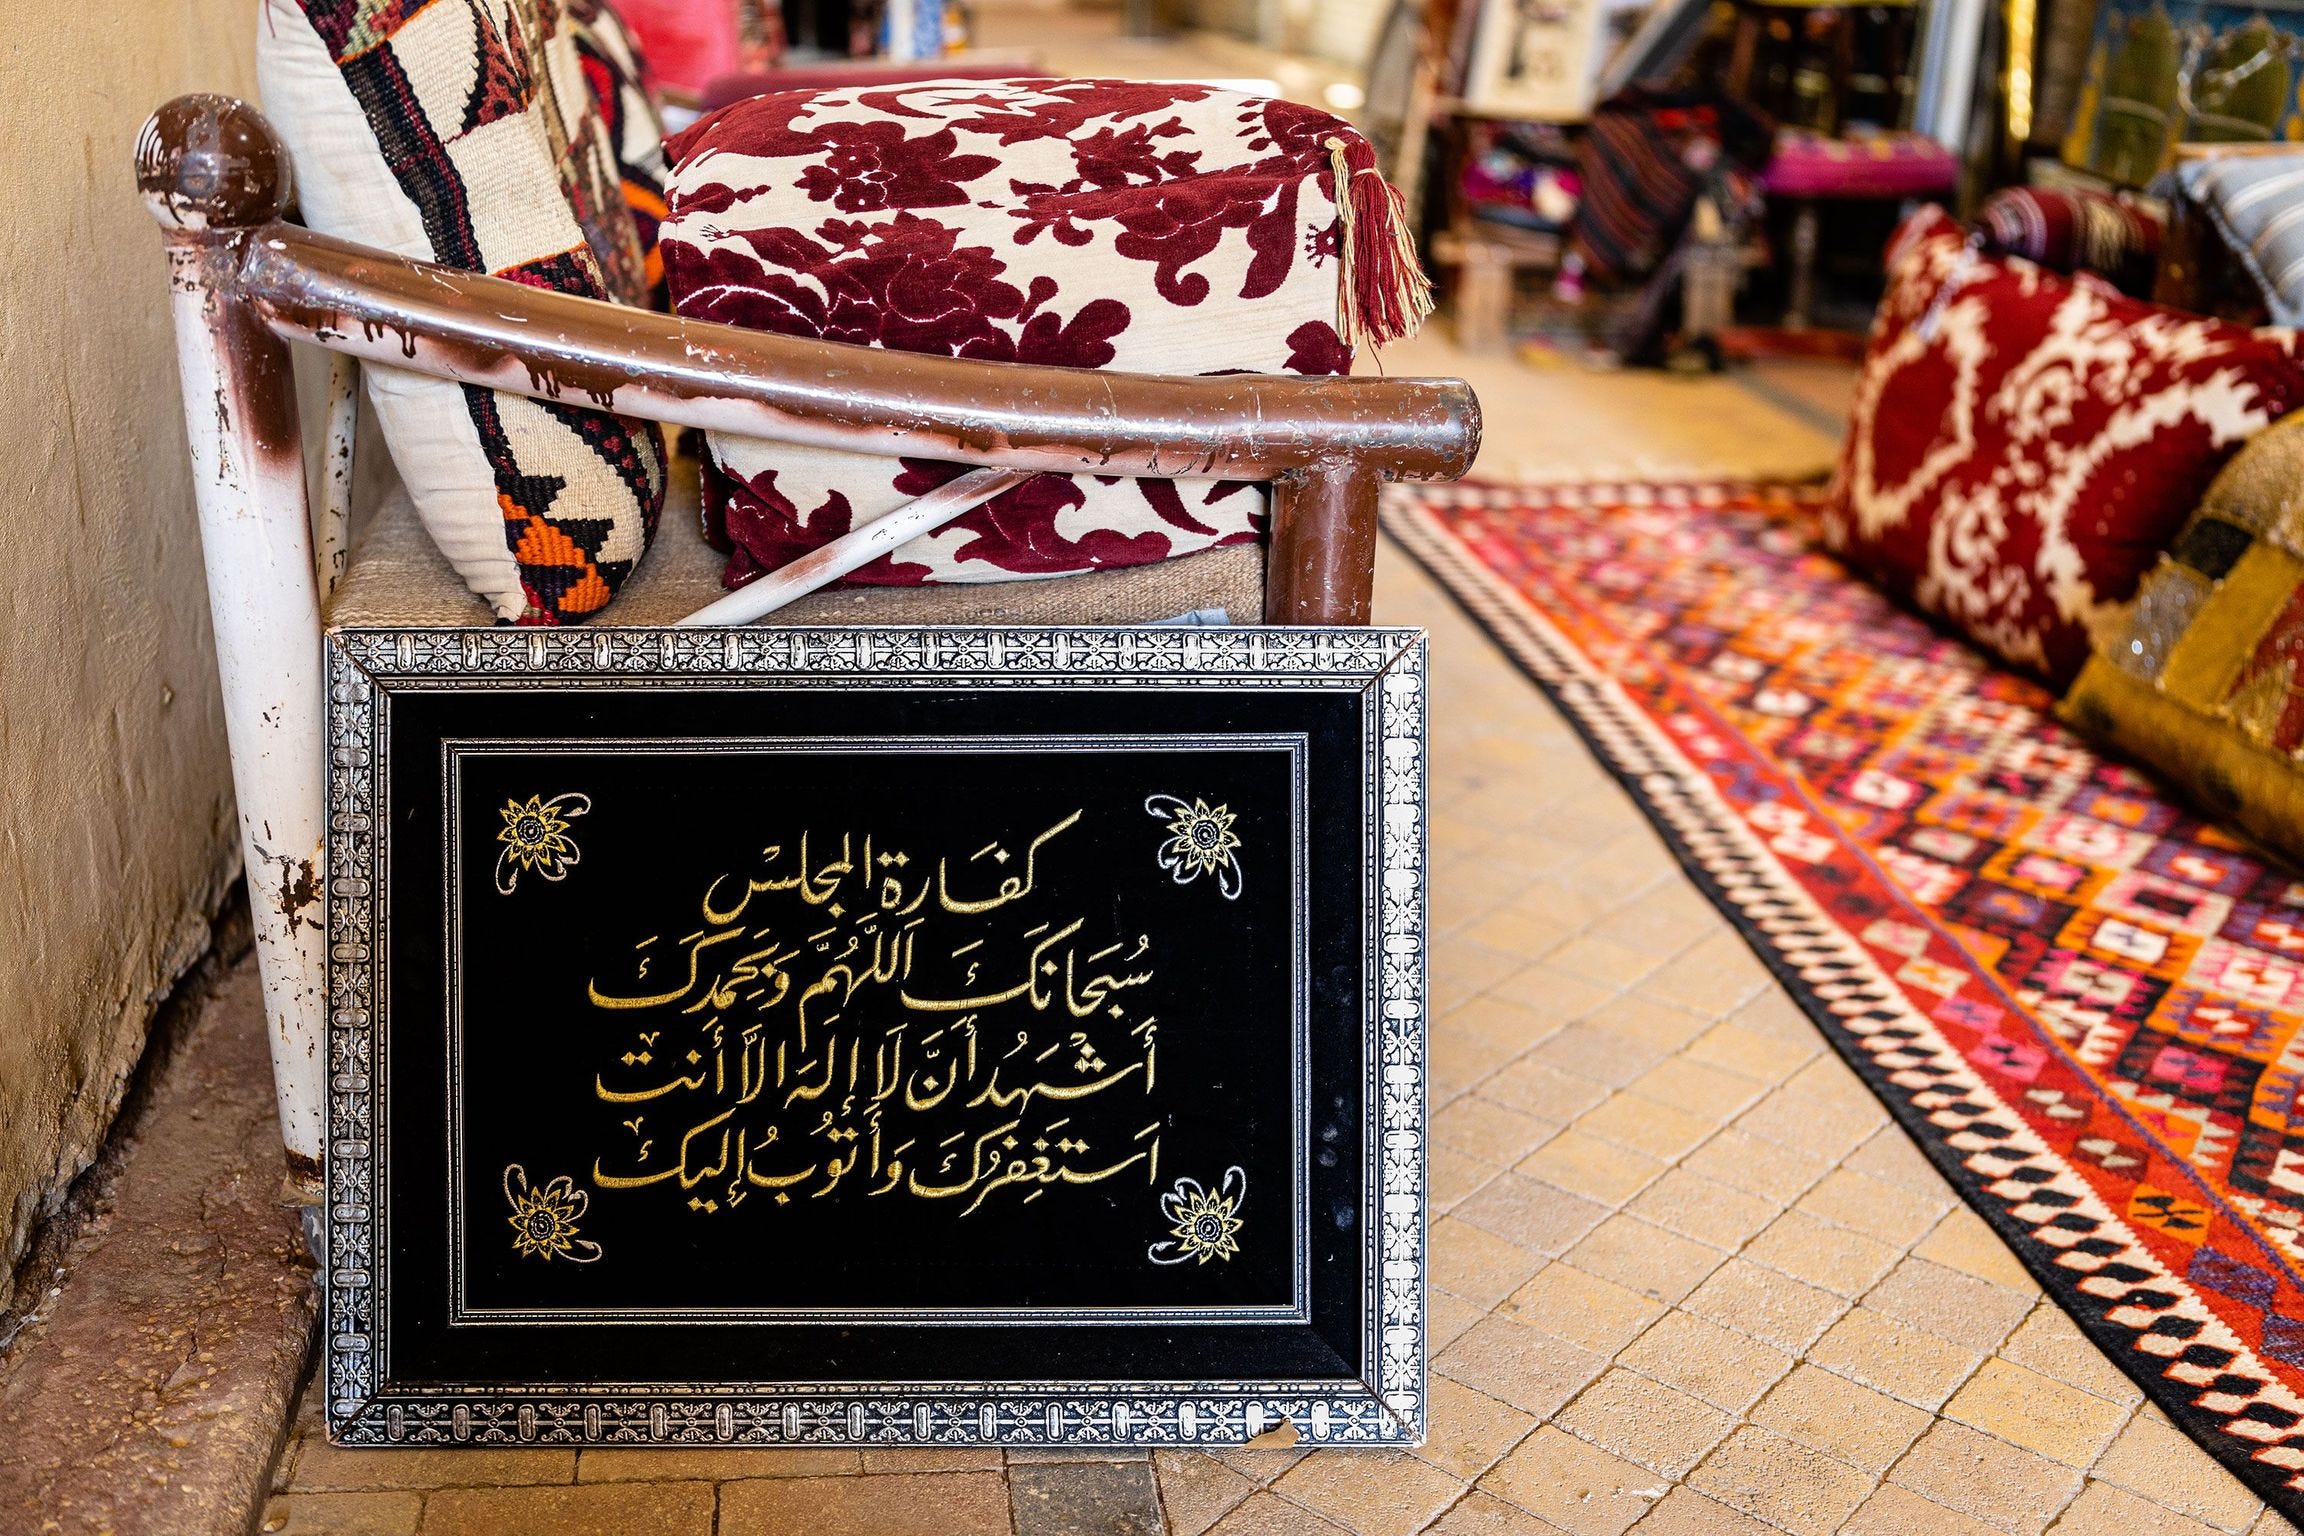 كفَارة المجلس
سُبَحَانكَ اَللَّهُمَّ وَبَحِمَدكَ
أَشْهَدُ أَنَّ لَا إِلَهَ الاَّ أَنت
اَستَغَفِرُكَ وَأَتوُبُ إِليك